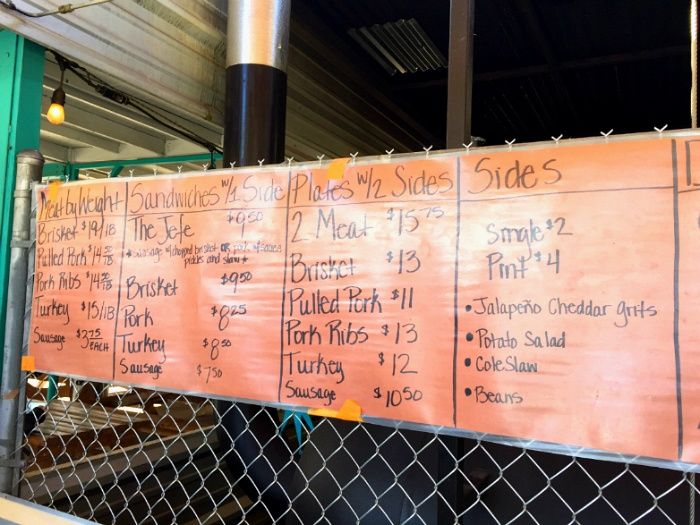 Meat by Weight
Brisket $19/lB
Pulled Pork $14.50/lB
Pork Ribs $14.50/lB
Turkey $15/lB
Sausage $3.75 EACH
Sandwiches w/1 Side
The Jefe $9.50
* Sausage w/chopped brisket OR pork w/sauce,
pickles and slaw *
Brisket $9.50
Pork $8.25
Turkey $8.50
Sausage $7.50
Plates w/2 Sides
2 Meat $15.75
Brisket $13
Pulled Pork $11
Pork Ribs $13
Turkey $12
Sausage $10.50
Sides
Single $2
Pint $4
• Jalapeño Cheddar grits
• Potato Salad
• Cole Slaw
• Beans